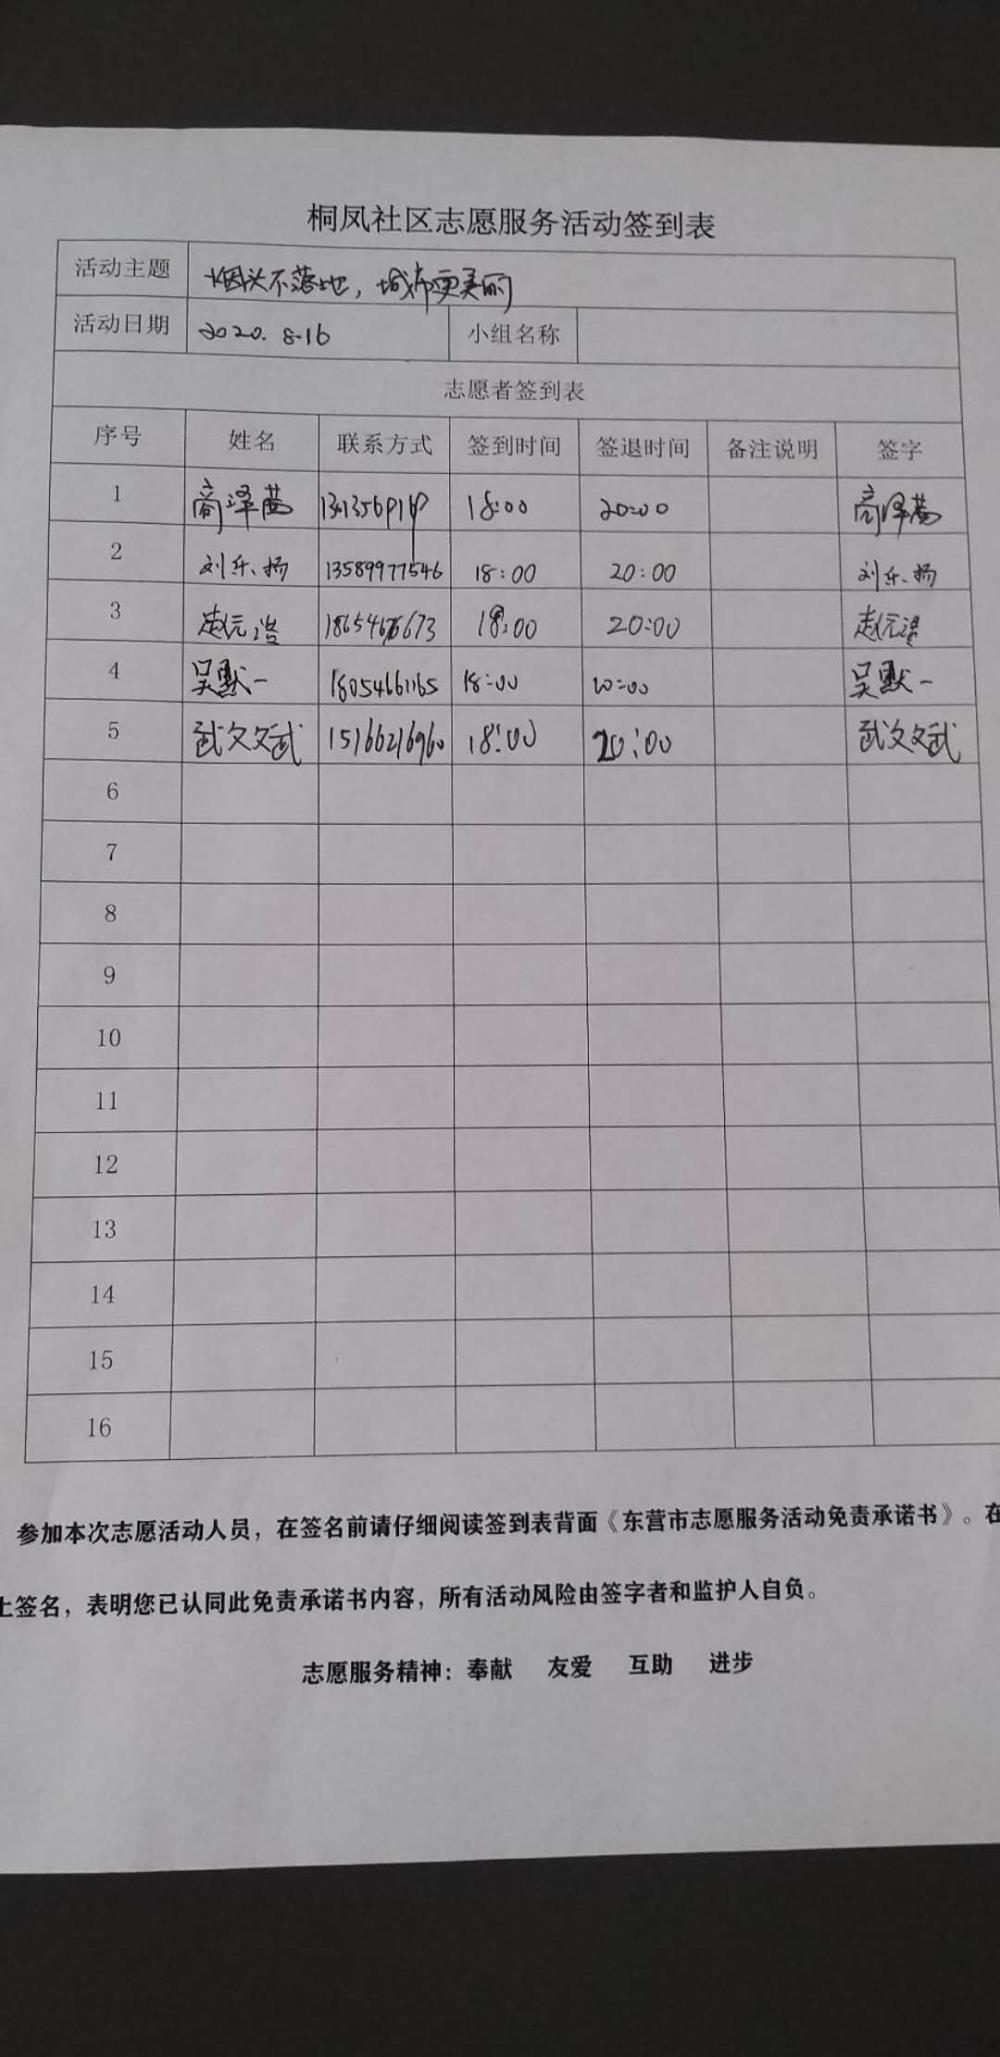 桐凤社区志愿服务活动签到表
活动主题 烟头不落地，城市更美丽
活动日期 2020.8.16 小组名称
志愿者签到表
序号 姓名 联系方式 签到时间 签退时间 备注说明 签字
1 商泽茜 18:00 20:00 商泽茜
2 刘乐扬 13589977546 18:00 20:00 刘乐扬
3 赵元浩 18:00 20:00 赵元浩
4 吴默一 18054661165 18:00 20:00 吴默一
5 武文斌 15166216960 18:00 20:00 武文斌
6
7
8
9
10
11
12
13
14
15
16
参加本次志愿活动人员，在签名前请仔细阅读签到表背面《东营市志愿服务活动免责承诺书》。在
上签名，表明您已认同此免责承诺书内容，所有活动风险由签字者和监护人自负。
志愿服务精神：奉献 友爱 互助 进步